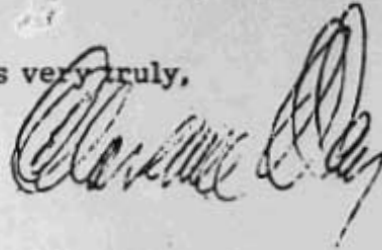 s very truly,
Clarence Day